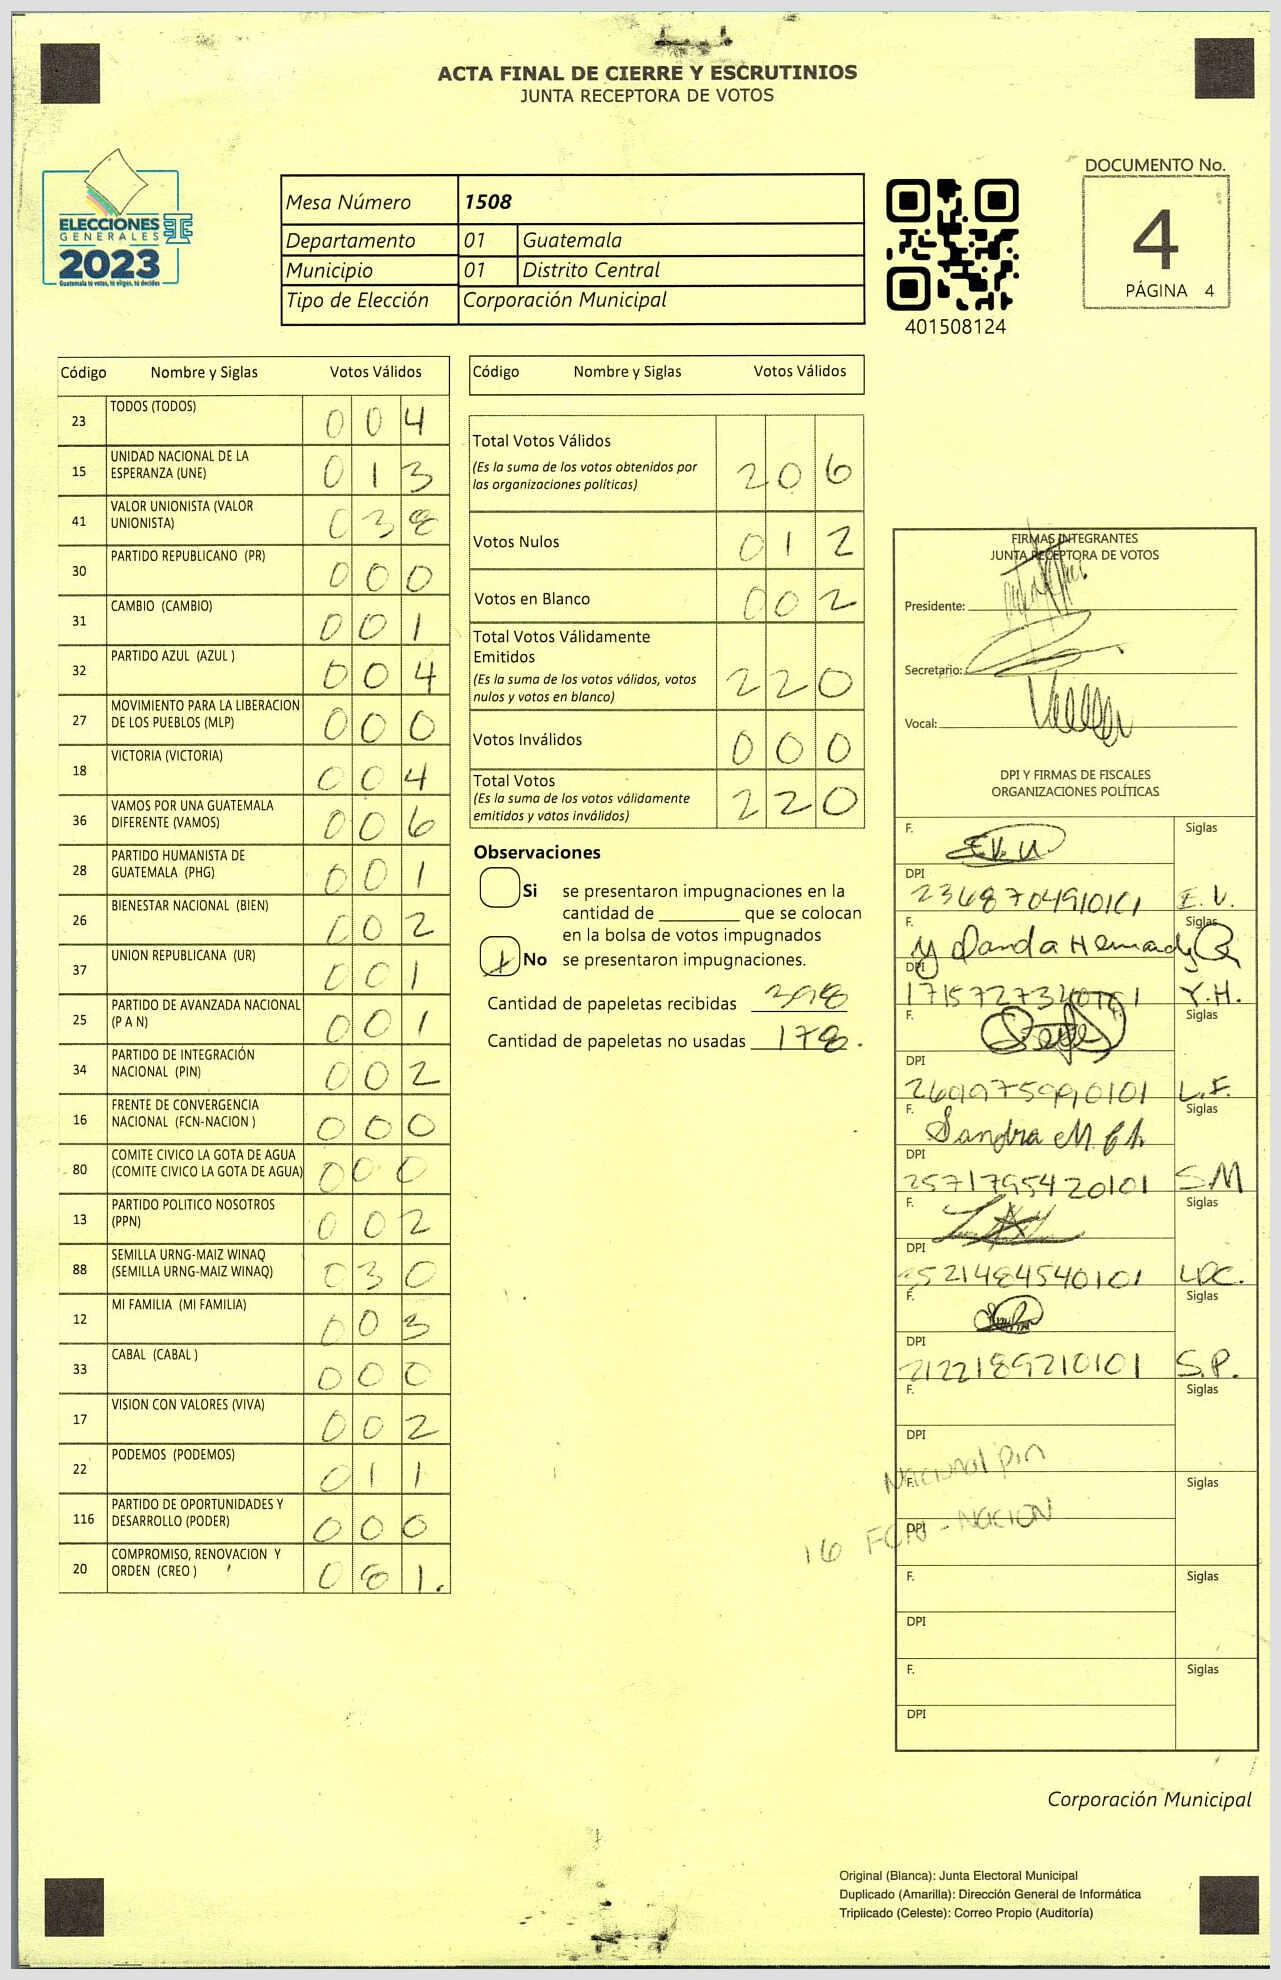 ACTA FINAL DE CIERRE Y ESCRUTINIOS
JUNTA RECEPTORA DE VOTOS
ELECCIONES
GENERALES
2023
Guatemala tú votas, tú eliges, tú decides
Mesa Número 1508
Departamento 01 Guatemala
Municipio 01 Distrito Central
Tipo de Elección Corporación Municipal
401508124
DOCUMENTO No.
4
PÁGINA 4
Código Nombre y Siglas Votos Válidos
23 TODOS (TODOS) 0 0 4
15 UNIDAD NACIONAL DE LA
ESPERANZA (UNE) 0 1 3
41 VALOR UNIONISTA (VALOR
UNIONISTA) 0 3 8
30 PARTIDO REPUBLICANO (PR) 0 0 0
31 CAMBIO (CAMBIO) 0 0 1
32 PARTIDO AZUL (AZUL ) 0 0 4
27 MOVIMIENTO PARA LA LIBERACION
DE LOS PUEBLOS (MLP) 0 0 0
18 VICTORIA (VICTORIA) 0 0 4
36 VAMOS POR UNA GUATEMALA
DIFERENTE (VAMOS) 0 0 6
28 PARTIDO HUMANISTA DE
GUATEMALA (PHG) 0 0 1
26 BIENESTAR NACIONAL (BIEN) 0 0 2
37 UNION REPUBLICANA (UR) 0 0 1
25 PARTIDO DE AVANZADA NACIONAL
(P A N) 0 0 1
34 PARTIDO DE INTEGRACIÓN
NACIONAL (PIN) 0 0 2
16 FRENTE DE CONVERGENCIA
NACIONAL (FCN-NACION ) 0 0 0
80 COMITE CIVICO LA GOTA DE AGUA
(COMITE CIVICO LA GOTA DE AGUA) 0 0 0
13 PARTIDO POLITICO NOSOTROS
(PPN) 0 0 2
88 SEMILLA URNG-MAIZ WINAQ
(SEMILLA URNG-MAIZ WINAQ) 0 3 0
12 MI FAMILIA (MI FAMILIA) 0 0 3
33 CABAL (CABAL ) 0 0 0
17 VISION CON VALORES (VIVA) 0 0 2
22 PODEMOS (PODEMOS) 0 1 1
116 PARTIDO DE OPORTUNIDADES Y
DESARROLLO (PODER) 0 0 0
20 COMPROMISO, RENOVACION Y
ORDEN (CREO ) 0 8 1.
Código Nombre y Siglas Votos Válidos
Total Votos Válidos
(Es la suma de los votos obtenidos por
las organizaciones políticas) 2 0 6
Votos Nulos 0 1 2
Votos en Blanco 0 0 2
Total Votos Válidamente
Emitidos
(Es la suma de los votos válidos, votos
nulos y votos en blanco) 2 2 0
Votos Inválidos 0 0 0
Total Votos
(Es la suma de los votos válidamente
emitidos y votos inválidos) 2 2 0
Observaciones
Si se presentaron impugnaciones en la
cantidad de ________ que se colocan
en la bolsa de votos impugnados
No se presentaron impugnaciones.
Cantidad de papeletas recibidas 398
Cantidad de papeletas no usadas 178.
FIRMAS INTEGRANTES
JUNTA RECEPTORA DE VOTOS
Presidente:
Secretario:
Vocal:
DPI Y FIRMAS DE FISCALES
ORGANIZACIONES POLÍTICAS
F. E.V.U. Siglas
DPI
2368704910101 E.V.
F. Siglas
DPI
Y.H.
F. Siglas
DPI
L.F.
F. Sandra M. Siglas
DPI
2571795420101 SM
F. Siglas
DPI
3521484540101 LDC.
F. Siglas
DPI
2122189210101 S.P.
F. Siglas
DPI
Nacional pin
F. Siglas
DPI
16 FCN - NACION
F. Siglas
DPI
F. Siglas
DPI
Corporación Municipal
Original (Blanca): Junta Electoral Municipal
Duplicado (Amarilla): Dirección General de Informática
Triplicado (Celeste): Correo Propio (Auditoría)